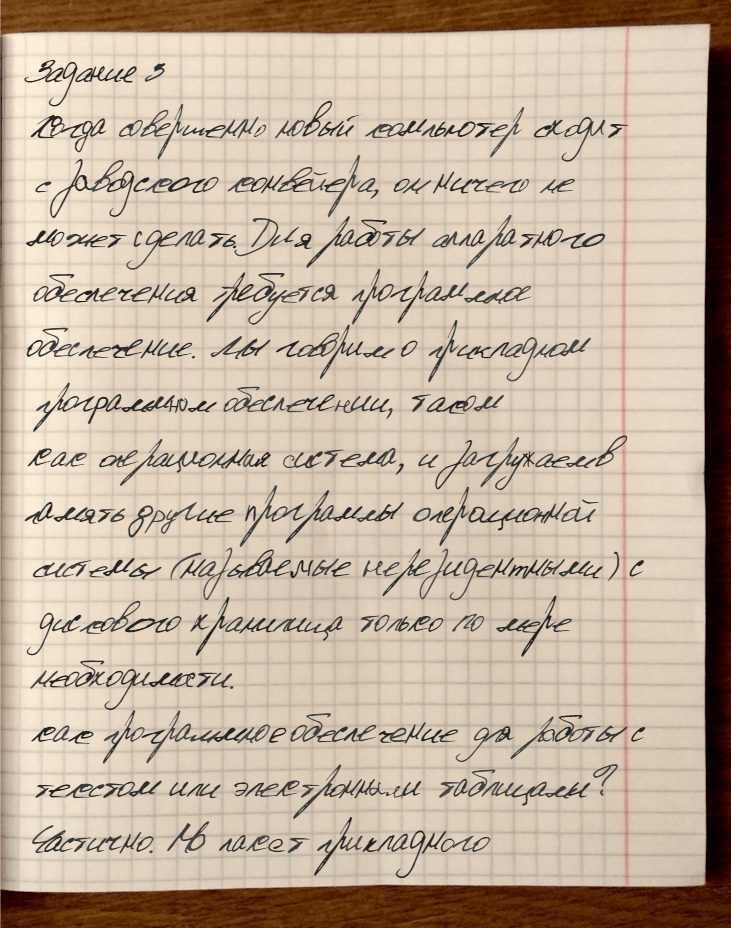 Задание 3
Когда совершенно новый компьютер сходит
с заводского конвейера, он ничего не
может сделать. Для работы аппаратного
обеспечения требуется программное
обеспечение. Мы говорим о прикладном
программном обеспечении, таком
как операционная система, и загружаем в
память другие программы операционной
системы (называемые нерезидентными) с
дискового хранилища только по мере
необходимости.
как программное обеспечение для работы с
текстом или электронными таблицами?
Частично. Но пакет прикладного